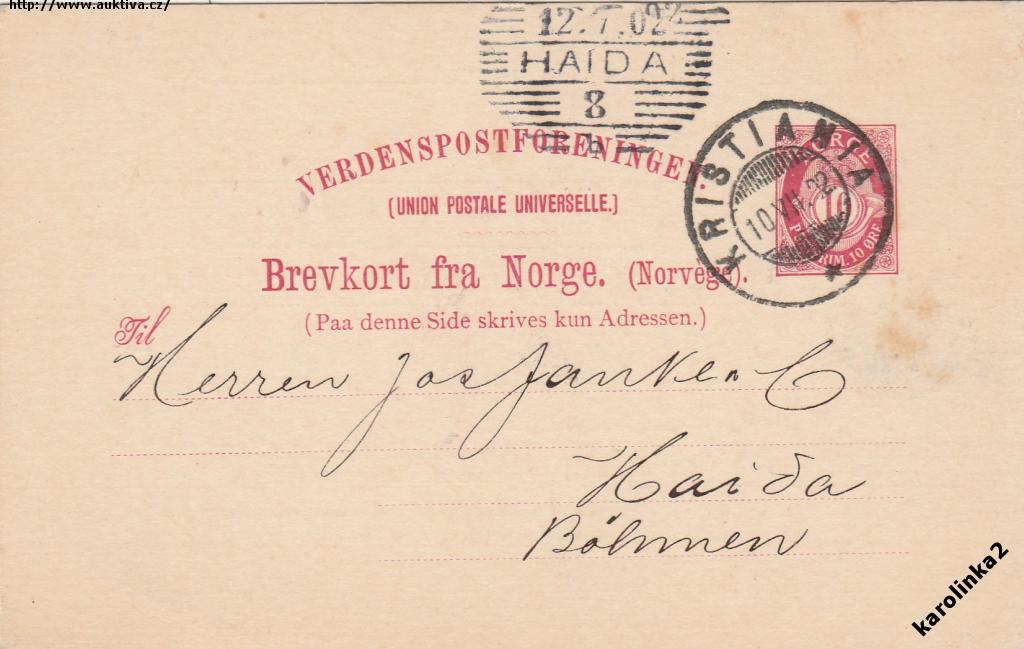 http://www.auktiva.cz/
12.7.02
HAIDA
8
VERDENSPOSTFORENINGEN
(UNION POSTALE UNIVERSELLE.)
KRISTIANIA
10 VII.
NORGE
10
FRIM. 10 ØRE
Brevkort fra Norge. (Norvege).
(Paa denne Side skrives kun Adressen.)
Til
Herren Jos Janke & C
Haida
Böhmen
karolinka2